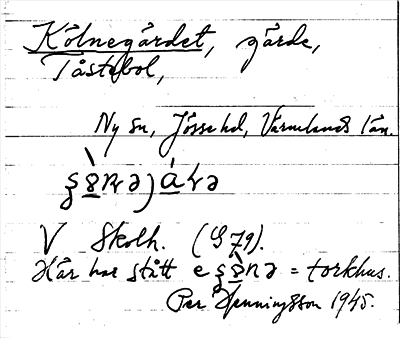 Kölnegärdet, gärde,
Tåstebol,
Ny sn, Jösse hd, Värmlands län.
V Skolh. (G 79).
Här har stått e = torkhus.
Per Henningsson 1945.